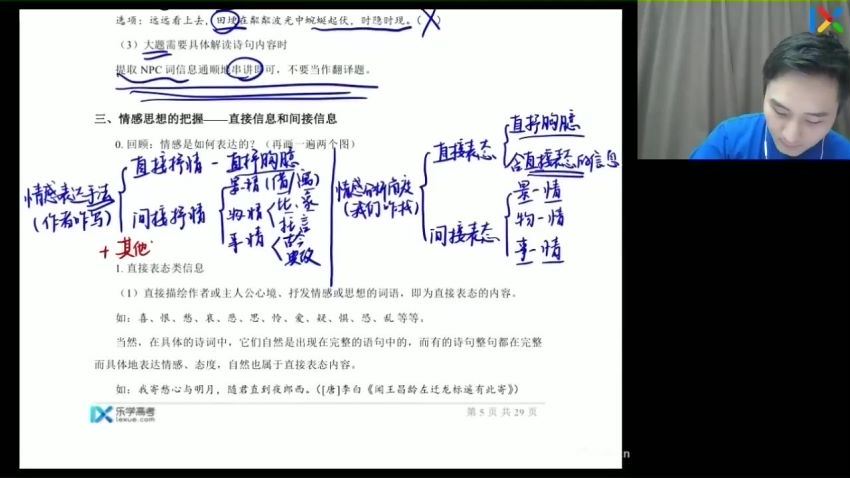 选项：远远看上去，田埂在粼粼波光中蜿蜒起伏，时隐时现。（X）
（3）大题需要具体解读诗句内容时
提取 NPC 词信息通顺地串讲即可，不要当作翻译题。
三、情感思想的把握——直接信息和间接信息
0. 回顾：情感是如何表达的？（再画一遍两个图）
情感表达手法
（作者咋写）
+ 其他
直接抒情 - 直抒胸臆
间接抒情
景-情（借/寓）
物-情
比、象
托言
事-情
古今
典故
情感分析角度
（我们咋找）
直接表态
直抒胸臆
含直接表态的信息
间接表态
景-情
物-情
事-情
1. 直接表态类信息
（1）直接描绘作者或主人公心境、抒发情感或思想的词语，即为直接表态的内容。
如：喜、恨、愁、哀、怨、思、怜、爱、疑、惧、恐、乱 等等。
当然，在具体的诗词中，它们自然是出现在完整的语句中的，而有的诗句整句都在完整
而具体地表达情感、态度，自然也属于直接表态内容。
如：我寄愁心与明月，随君直到夜郎西。（[唐]李白《闻王昌龄左迁龙标遥有此寄》）
乐学高考
lexue.com
第 5 页 共 29 页